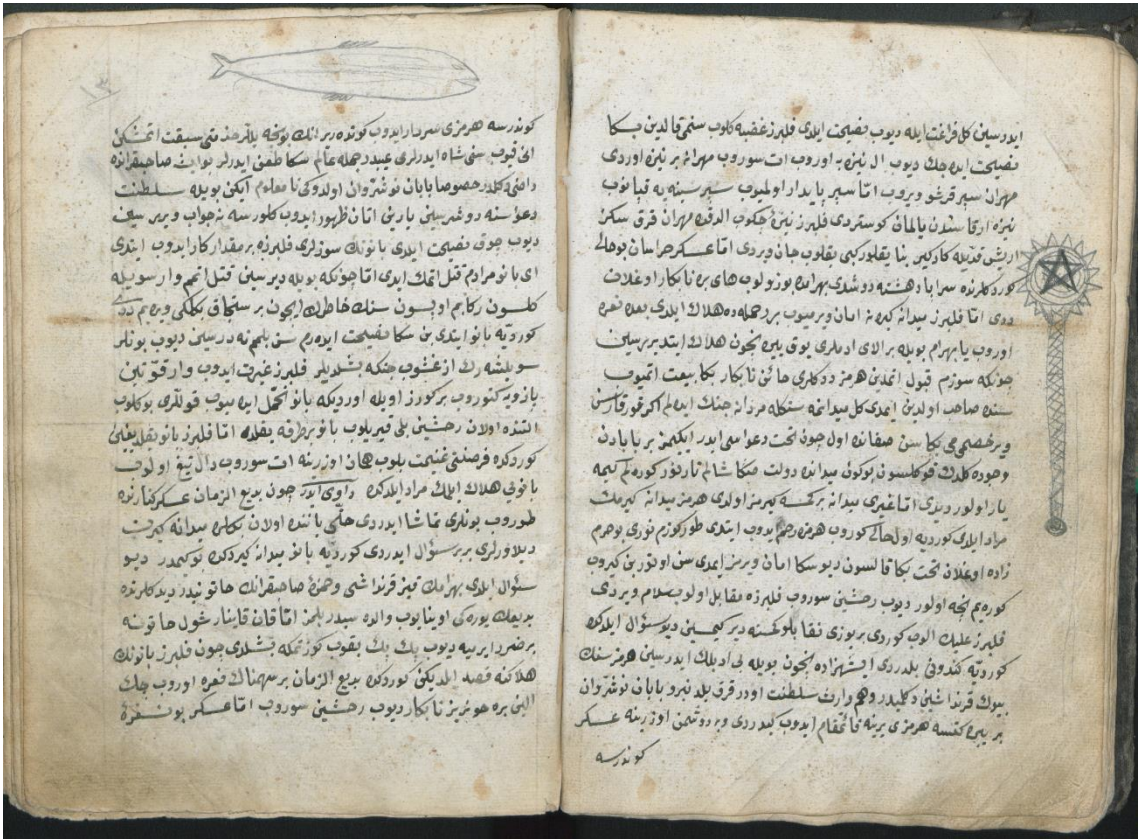 ايدرسين كل فراغت ايله ديوب نصيحت ايلدى قلبرز غضبه كلوب سنمى قالدين بكا
نصيحت ايده جك ديوب ال نيزه يه اوروب ات سوروب مهرانه بر نيزه اوردى
مهران سپر قرشو ويروب اتا سپر پايدار اولميوب سپر سينه يه قپانوب
نيزه ارقاسندن يالمان كوستردى قلبرز نيزه چكوب الدقده مهران فرق سكز
ارشق قديله كاركير بنا يقلور كبى يقلوب جان ويردى اتا عسكر خراسان بو حالى
كوردكلرنده سراپا دهشته دوشدى بهرامه بوزولوب هاى بره نابكار اوغلان
ديدى اتا قلبرز ميدانه كيرنه امان ويرميوب بر حمله ده هلاك ايلدى بعده نعره
اوروب يا بهرام بويله بر الاى ادملرى يوق يره نچون هلاك ايتديررسين
چونكه سوزم قبول اتمدين هرمز ددكلرى خائن نابكار بكا بيعت اتميوب
سنده صاحب اولدين ايمدى كل ميدانمه سنكله مردانه جنك ايده لم اكر قورقارسن
ويرخصمى بكا سن صفاده اول چون تخت دعواسى ايدر ايكيمز بر بابادن
وجوده كلدك قو كلسون بوكون ميدانده دولت منكا شالم تا نيور كوره لم كيمه
يار اولور ديدى اتا غيرى ميدانه بر كمسه كيرمز اولدى هرمز ميدانه كيرمك
مراد ايلدى كورديه اول حالى كوروب هرمزه رحم ايدوب ايتدى طور كوزم نورى بو حرم
زاده اوغلان تخت بكا قالسون ديو سكا امان ويرمز ايمدى سن اوتور بن كيروب
كوره يم نجه اولور ديوب رحشين سوروب قلبرزه مقابل اولوب سلام ويردى
قلبرز عليك الوب كوردى بر يوزى نقابلو كمسنه در كيمسين ديو سؤال ايلدكده
كورديه كندونى بلدردى اى شهزاده نچون بويله بى ادبلك ايدرسين هرمز سنك
بيوك قرنداشين دكلميدر وهم وارث سلطنت اودر قرق يلدنبرو بابان نوشروان
بر يره كتسه هرمزى يرينه قائمقام ايدوب كيدردى وبر دوشمن اوزرينه عسكر
كوندرسه
كوندرسه هرمزى سردار ايدوب كوندرر انك بونجه يللر خدمتى سبقت اتمشكن
انى قيوب سنى شاه ايدرلرمى عيبدر جمله عالم سكا طعن ايدرلر بو ايشه صاحبقران ده
راضى دكلدر خصوصا بابان نوشروان اولدوكى نا معلوم ايكن بويله سلطنت
دعواسنه دوغميسين يارين اتان ظهور ايدوب كلورسه نه جواب ويررسين
ديوب چوق نصيحت ايلدى بانونك سوزلرى قلبرزه بر مقدار كار ايدوب ايتدى
اى بانو مرادم قتل اتمك ايدى اتا چونكه بويله ديرسين قتل اتمم وار سويله
كلسون ركابم اوپسون سنك خاطرك ايچون بر سنجاق بكلكى ويره يم ددى
كورديه بانو ايتدى بن سكا نصيحت ايده رم سن بلمم نه درسين ديوب بونلر
سويلشه رك ازغشوب جنكه بشلديلر قلبرز غيرت ايدوب وار قوتين
بازويه كتوروب بر كورز اويله اورديكه بانو تحمل ايده ميوب قوللرى بوكلوب
التنده اولان رحشين بلى قيريلوب بانو بر طرفه يقلدى اتا قلبرز بانو يقلديغنى
كوردكده فرصتى غنيمت بلوب همان اوزرينه ات سوروب دال تيغ اولوب
بانويى هلاك ايلمك مراد ايلدكده راوى ايدر چون بديع الزمان عسكر كنارنده
طوروب بونلرى تماشا ايدردى حلبى ياننده اولان بكلره ميدانه كيرن
ديلاورلرى برر برر سؤال ايدردى كورديه بانو ميدانه كيردكده بو كيمدر ديو
سؤال ايلدى بهرامك قيز قرنداشى وحمزه صاحبقرانك خاتونيدر ديدكلرنده
بديعك يوره كى اويناوب والده سيدر بلمز اتا قان قاينار شول خاتونه
بر ضرر ايرميه ديوب پك پك بقوب كوزتمكه بشلدى چون قلبرز بانونك
هلاكنه قصد ايلديكن كوردكده بديع الزمان بر سهمناك نعره اوروب چك
الين بره خونريز نابكار ديوب رحشين سوروب اتا عسكر بو نعره